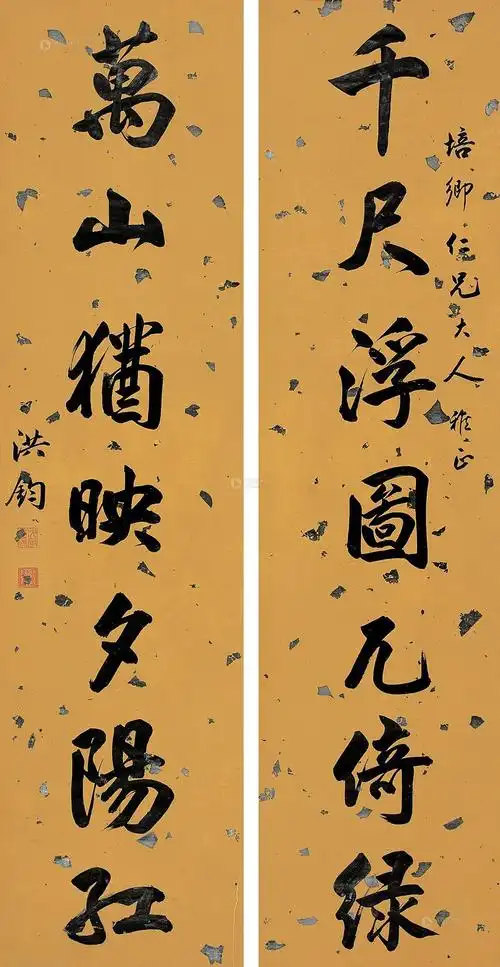 培卿仁兄大人雅正
千尺浮圖兀倚綠
萬山猶映夕陽紅
洪鈞